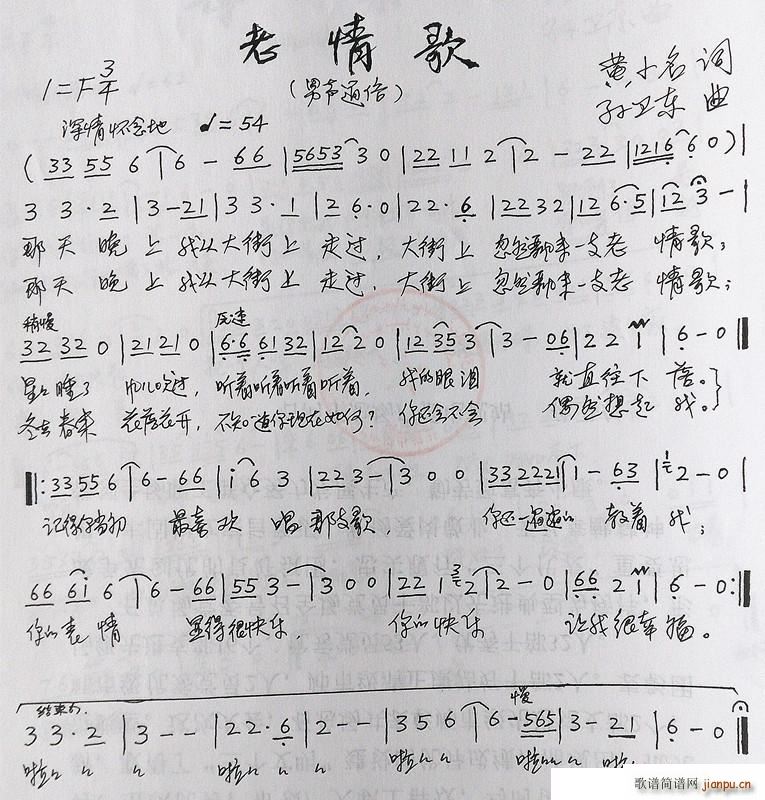 老情歌
(男声通俗)
1=F 3/4
黄小名 词
孙卫东 曲
深情怀念地 ♩=54
(33 55 6 | 6 - 66 | 5653 3 0 | 22 11 2 | 2 - 22 | 1216 6 0) |
3 3·2 | 3 - 21 | 3 3·1 | 2 6·0 | 22·6 | 22 32 | 12 6·5 | 12 3 - |
那天晚上我从大街上走过,大街上忽然飘来一支老情歌;
那天晚上我从大街上走过,大街上忽然飘来一支老情歌;
稍慢 原速
32 32 0 | 21 21 0 | 6·6 61 32 | 12 2 0 | 12 35 3 | 3 - 06 | 2 2 1 | 6 - 0
听着听着听着听着,我的眼泪就直往下落。
冬去春来花落花开,不知道你现在如何?你还会不会偶然想起我。
|: 33 55 6 | 6 - 66 | i 6 3 | 22 3 - | 3 0 0 | 33 222 1 | 1 - 63 | 2 - 0 |
记得你当初最喜欢唱那支歌,你还逼着教着我;
66 6i 6 | 6 - 66 | 55 3 - | 3 0 0 | 22 1 2 | 2 - 0 | 66 2 1 | 6 - 0 :|
你的表情显得很快乐 你的快乐让我很幸福。
结束句 慢
3 3·2 | 3 - - | 22·6 | 2 - - | 3 5 6 | 6 - 565 | 3 - 21 | 6 - 0
啦 啦 啦 啦 啦
歌谱简谱网
jianpu.cn